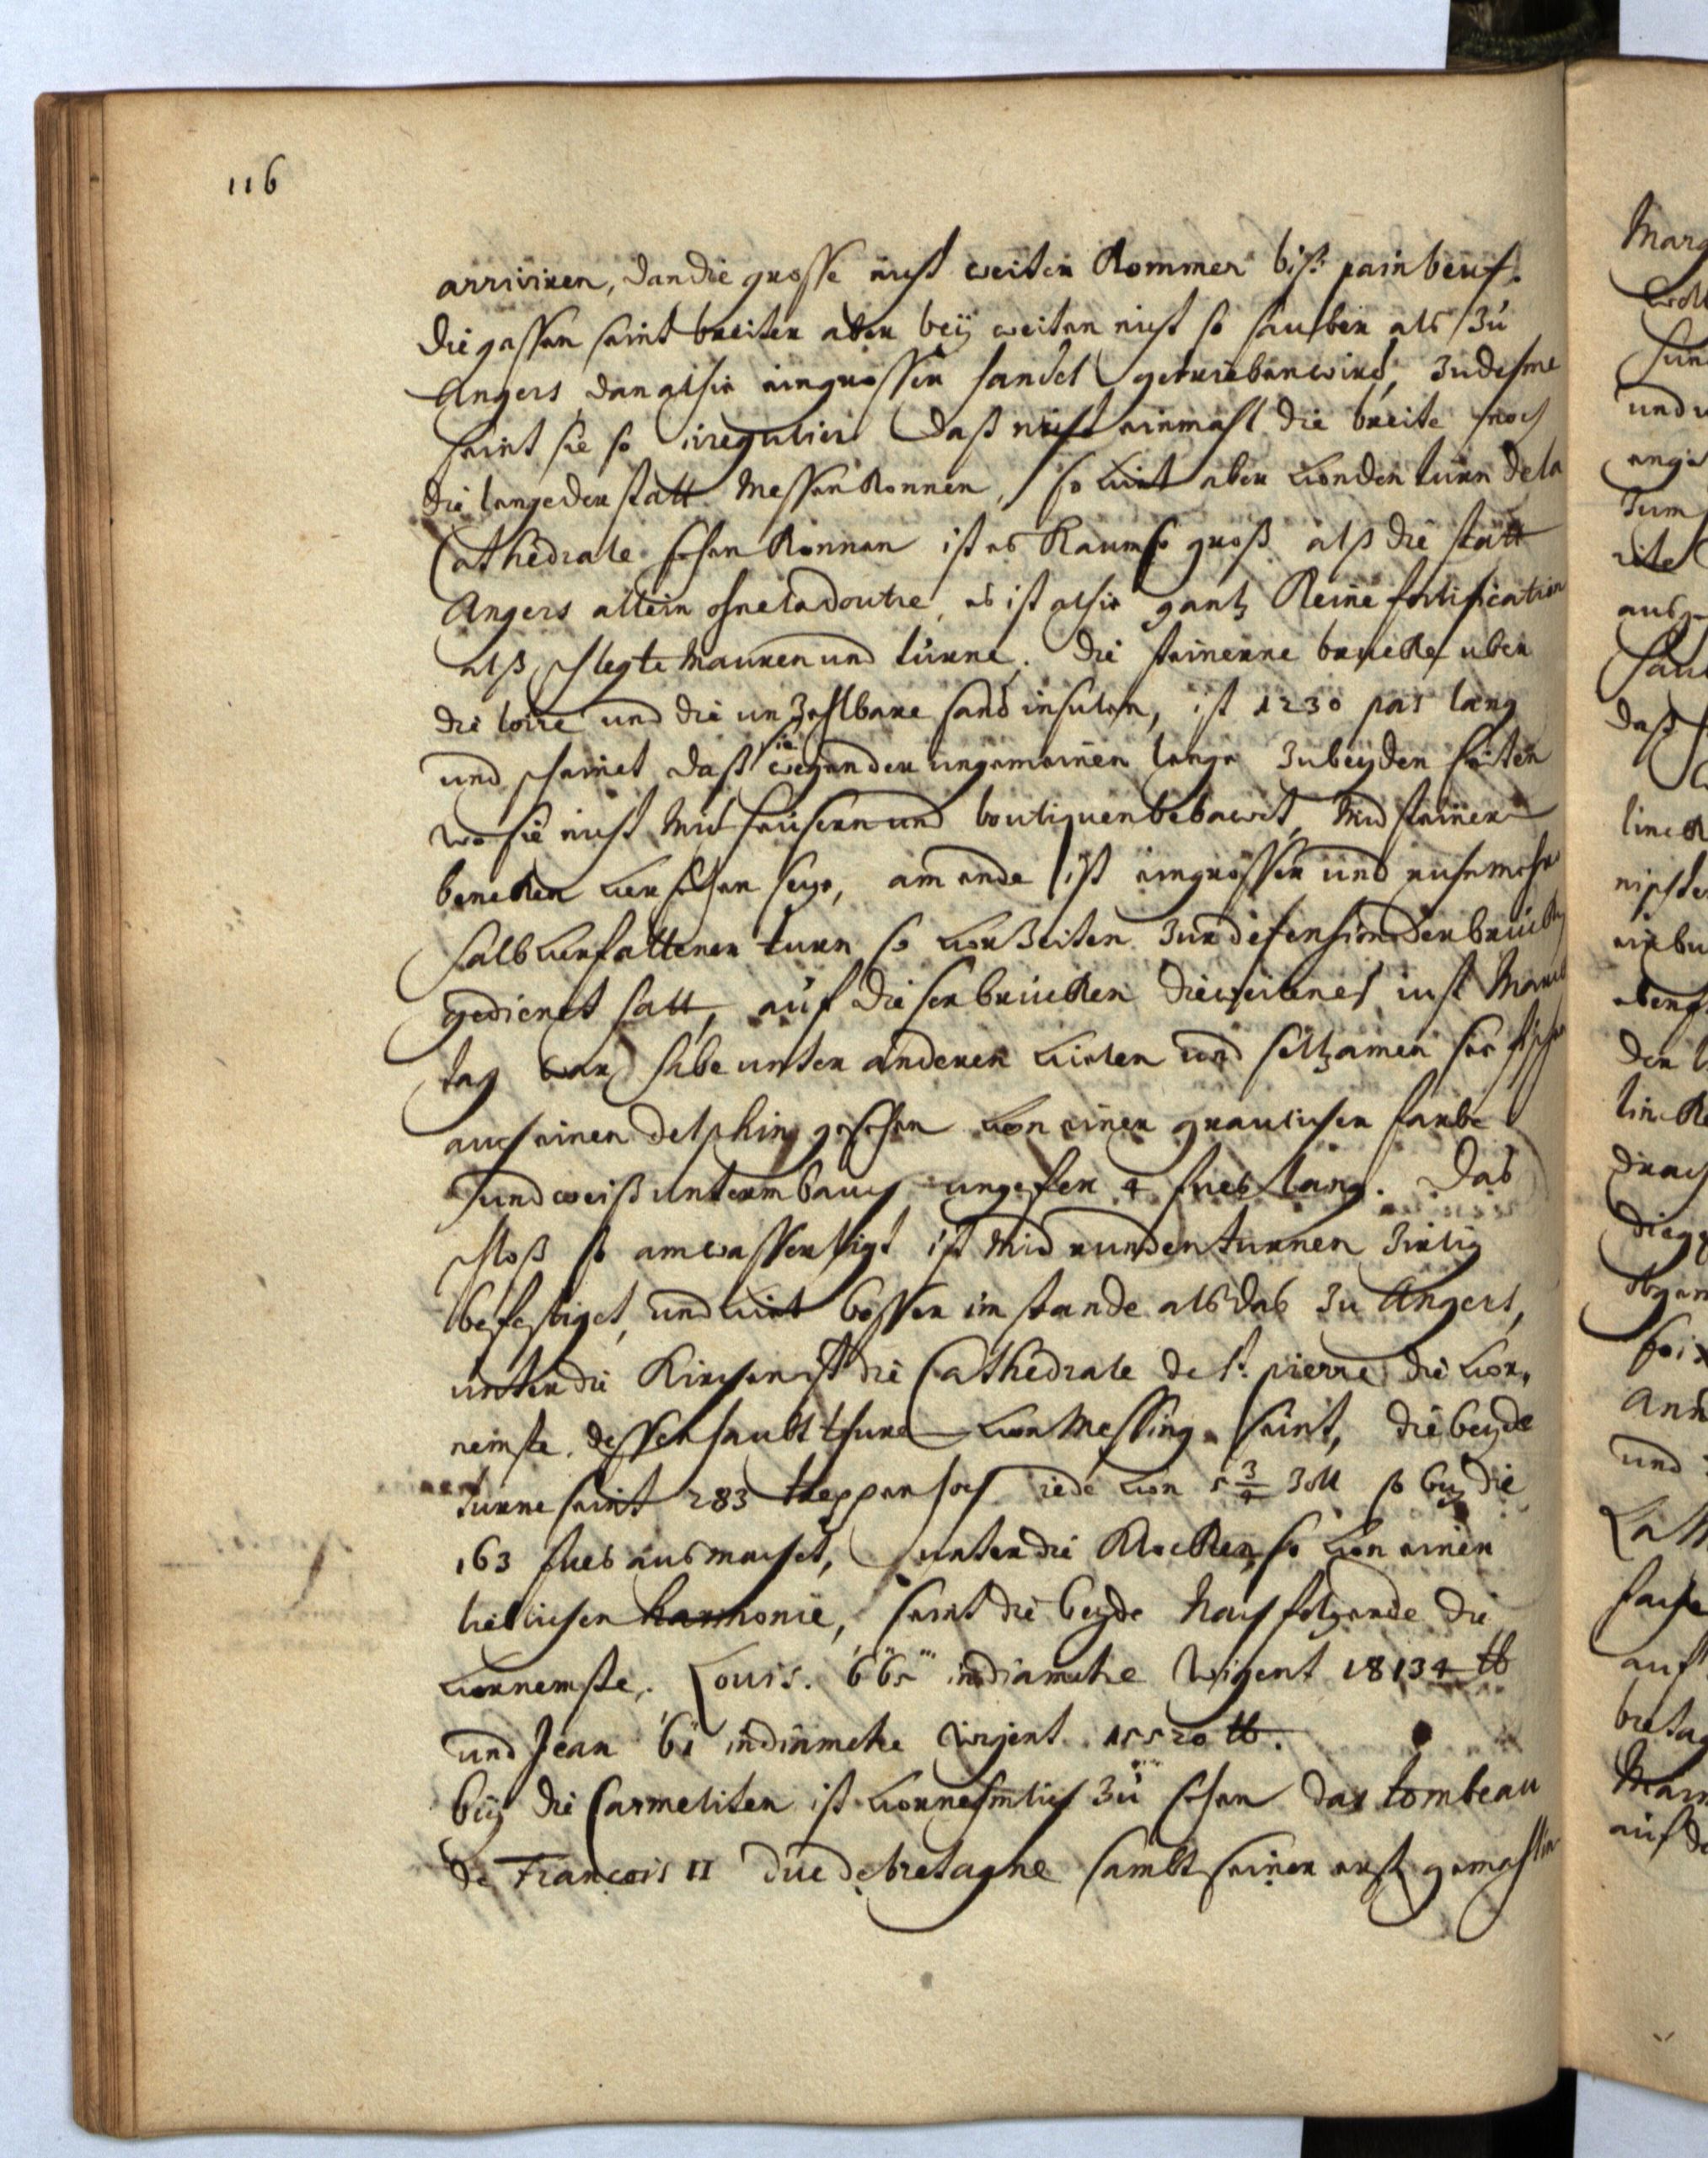 116
arriviren, dan die grosse nicht weiter kommen biß painbeuf.
die gassen seint breiter aber beÿ weiten nicht so sauber als zu
Angers, dan alhie ein grosser handel getrieben wird, zudehme
seint sie so irregulier daß nicht einmahl die breite noch
die lenge der statt messen konnen, so viel aber von den turn de la
Cathedrale sehen konnen ist es kaum so groß alß die statt
Angers allein ohne la doutre, es ist alhie gantz keine fortification
alß schlegte mauren und türne. die steinerne brucke uber
die loire und die unzehlbare sand insulen, ist 1230 pas lang
und scheinet daß sie wegen der ungemeinen lenge zu beyden seiten
wo sie nicht mit heusern und boutiquen bebawet, mid steinern
bencken versehen seye, am ende ist ein grosser und nuhnmehr
halb verfallener turn so vor zeiten zur defension der brücken
gedienet hatt, auf dieser brücken dieweil es just Marck
tag war habe unter anderen vielen und seltzamen see fische
auch einen delphin gesehen von einer graulichen farbe
und weiß unterm bauch ungefehr 4 fues lang. Das
schloß so am wasser ligt ist mid runden turnen zirlig
befestiget, und viel besser im stande als das zu Angers,
unter die kirchen ist die Cathedrale de St. pierre die vor-
nemste. dessen haubt thure von Messing seint, die beyde
turne seint 283 treppen hoch iede von 5 3/4 zoll so bey die
163 fues ausmachet, unter die klocken, so von einer
lieblichen harmonie, seint die beyde nachfolgende die
vornemste. Louis. 6' 6" 5''' in diametre wigent 18134 ℔
und Jean 6' 1" in diametre wigent 15520 ℔.
beÿ die Carmeliten ist vornehmlich zu sehen das tombeau
de François II duc de bretagne sambt seiner erst gemahlin